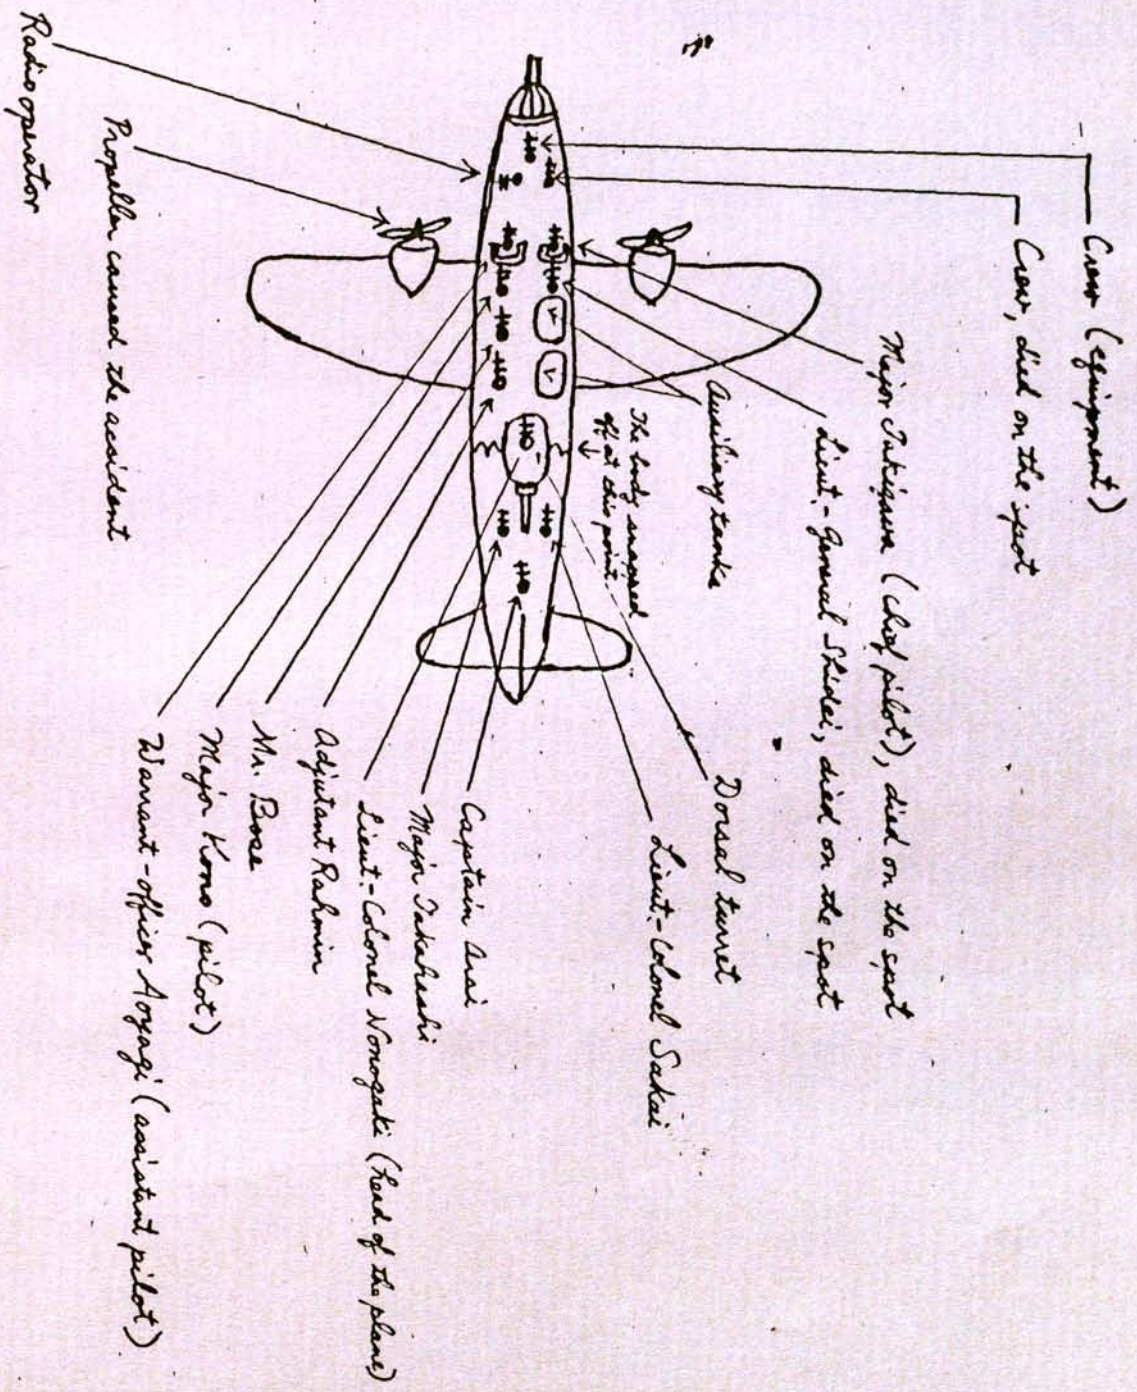 Crew (equipment)
Crew, died on the spot
Major Takizawa (chief pilot), died on the spot
Lieut.-General Shidei, died on the spot
Auxiliary tanks
The body snapped
off at this point.
Dorsal turret
Lieut.-Colonel Sakai
Captain Arai
Major Takahashi
Lieut.-Colonel Nonogaki (head of the plane)
Adjutant Rahmin
Mr. Bose
Major Kono (pilot)
Warrant-officer Aoyagi (assistant pilot)
Propeller caused the accident
Radio operator